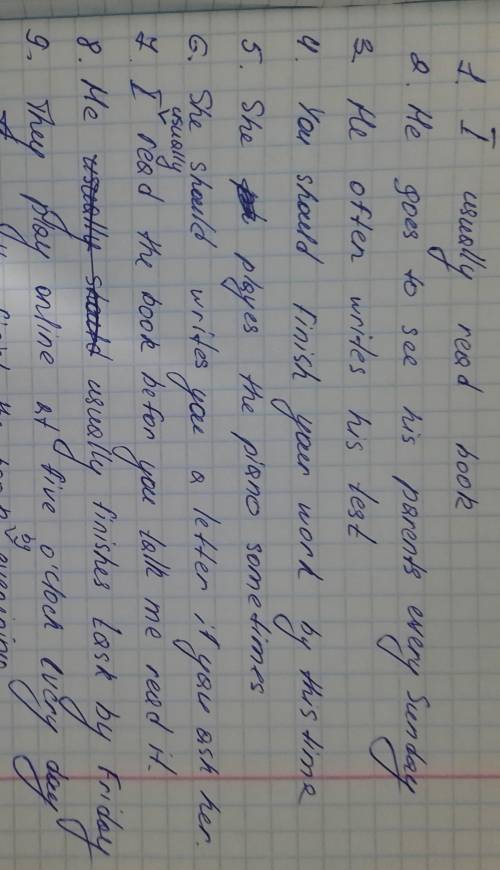 1. I usually read book
2. He goes to see his parents every Sunday
3. He often writes his test
4. You should finish your work by this time
5. She playes the piano sometimes
6. She should writes you a letter if you ask her.
7. I usually read the book befor you talk me read it.
8. He usually should usually finishes task by Friday
9. They play online at five o'clock every day
the book by